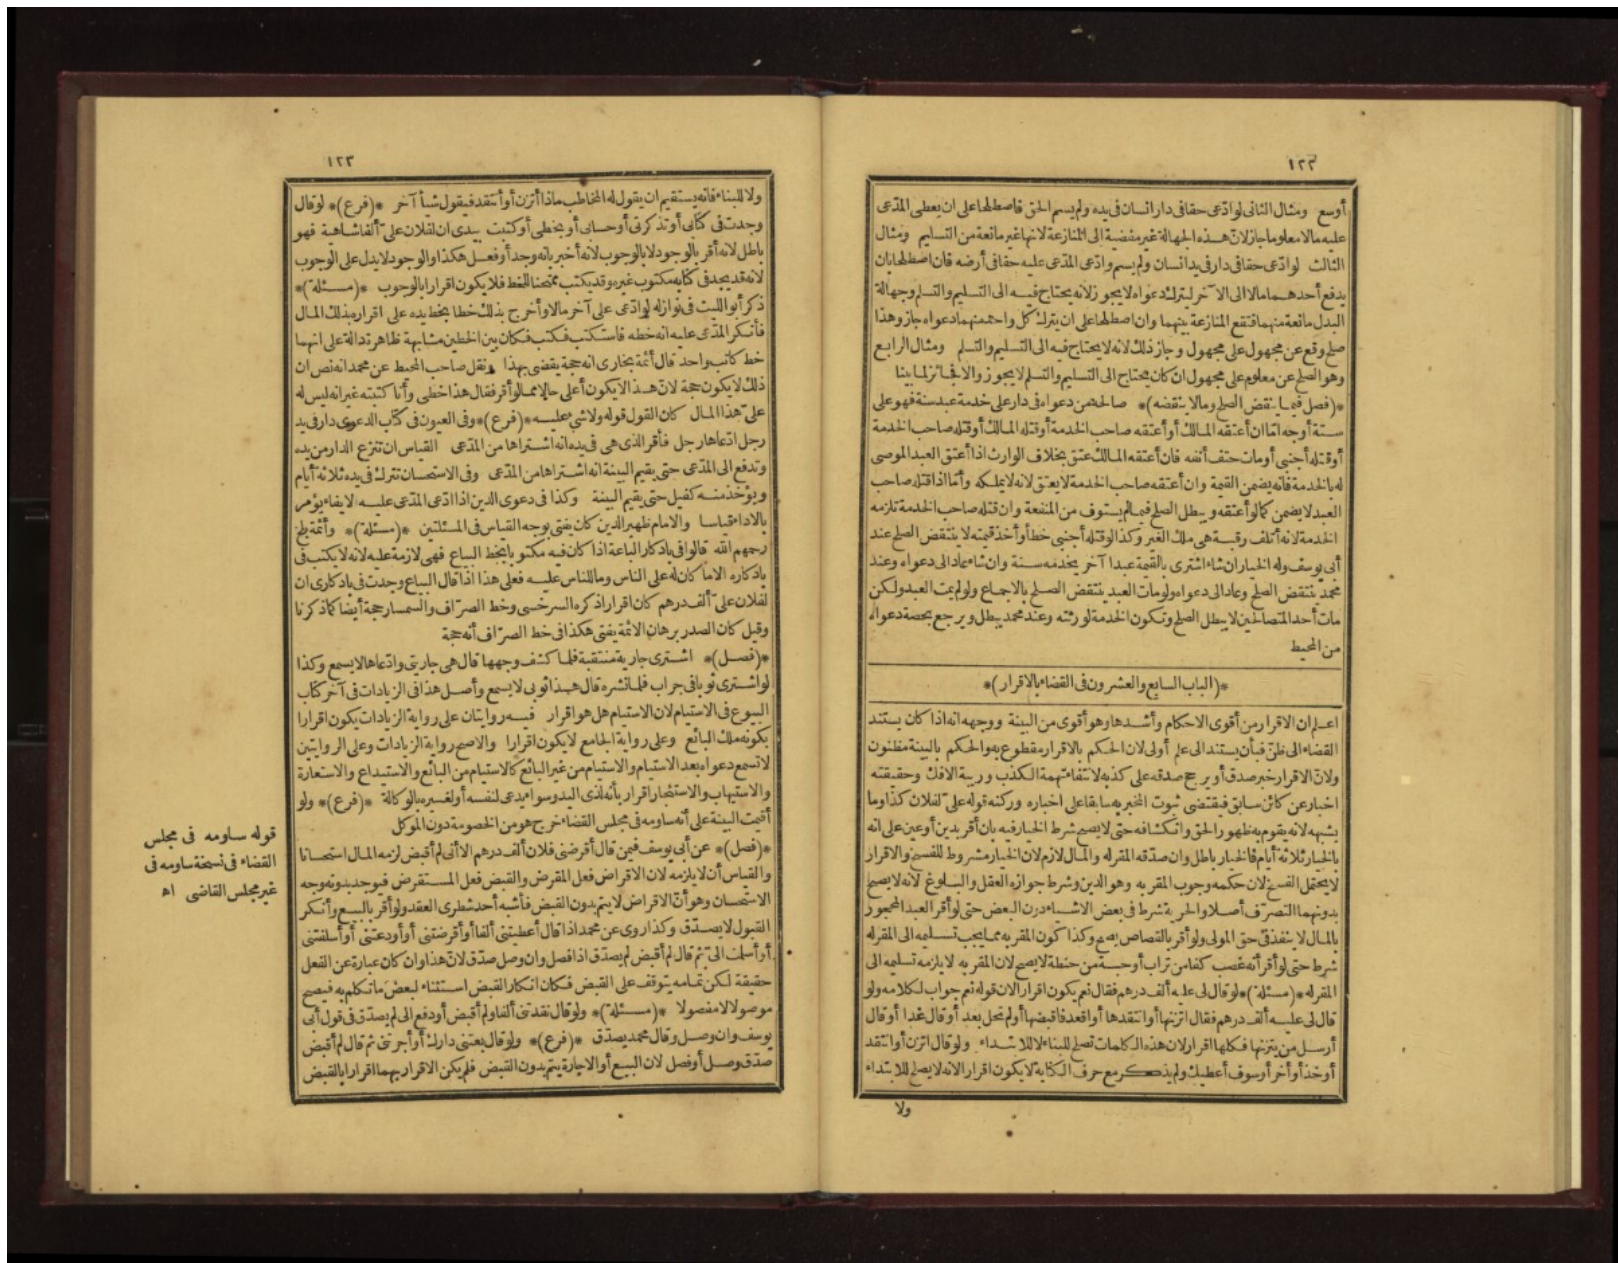 ١٢٢
أوسع ومثال الثانى لوادّعى حقا فى دار انسان فى يده ولم يسم الحق فاصطلحا على ان يعطى المدّعى
عليه مالا معلوما جاز لانّ هذه الجهالة غير مفضية الى المنازعة لانها غير مانعة من التسليم ومثال
الثالث لوادّعى حقا فى دار فى يد انسان ولم يسم وادّعى المدّعى عليه حقا فى أرضه فان اصطلحا بان
يدفع أحدهما مالا الى الآخر ليترك دعواه لا يجوز لانه يحتاج فيه الى التسليم والتسلم وجهالة
البدل مانعة منهما فتقع المنازعة بينهما وان اصطلحا على ان يترك كل واحد منهما دعواه جاز وهذا
صلح وقع عن مجهول على مجهول وجاز ذلك لانه لا يحتاج فيه الى التسليم والتسلم ومثال الرابع
وهو الصلح عن معلوم على مجهول ان كان يحتاج الى التسليم والتسلم لا يجوز والا فجائز لما بينا
*(فصل فيما ينقض الصلح وما لا ينقضه)* صالحه من دعواه فى دار على خدمة عبد سنة فهو على
ستة أوجه امّا ان أعتقه المالك أو أعتقه صاحب الخدمة أو قتله المالك أو قتله صاحب الخدمة
أو قتله أجنبى أو مات حتف أنفه فان أعتقه المالك عتق بخلاف الوارث اذا أعتق العبد الموصى
له بالخدمة فانه يضمن القيمة وان أعتقه صاحب الخدمة لا يعتق لانه لا يملكه وأمّا اذا قتله صاحب
العبد لا يضمن كما لو أعتقه ويبطل الصلح فيما لم يستوف من المنفعة وان قتله صاحب الخدمة تلزمه
الخدمة لانه أتلف رقبة هى ملك الغير وكذا لو قتله أجنبى خطأ وأخذ قيمته لا ينتقض الصلح عند
أبى يوسف وله الخيار ان شاء اشترى بالقيمة عبدا آخر يخدمه سنة وان شاء عاد الى دعواه وعند
محمد ينتقض الصلح وعاد الى دعواه ولو مات العبد ينتقض الصلح بالاجماع ولو لم يمت العبد ولكن
مات أحد المتصالحين لا يبطل الصلح وتكون الخدمة لورثته وعند محمد يبطل ويرجع بحصة دعواه
من المحيط
*(الباب السابع والعشرون فى القضاء بالاقرار)*
اعلم ان الاقرار من أقوى الاحكام وأشدها وهو أقوى من البينة ووجهه انه اذا كان يستند
القضاء الى ظنّ فبأن يستند الى علم أولى لان الحكم بالاقرار مقطوع به والحكم بالبينة مظنون
ولانّ الاقرار خبر صدق أو يرجح صدقه على كذبه لانتفاء تهمة الكذب وريبة الافك وحقيقته
اخبار عن كائن سابق فيقتضى ثبوت المخبر به سابقا على اخباره وركنه قوله علىّ لفلان كذا وما
يشبهه لانه يقوم به ظهور الحق وانكشافه حتى لا يصح شرط الخيار فيه بان أقر بدين أو عين على انه
بالخيار ثلاثة أيام فالخيار باطل وان صدّقه المقر له والمال لازم لان الخيار مشروط للفسخ والاقرار
لا يحتمل الفسخ لان حكمه وجوب المقر به وهو الدين وشرط جوازه العقل والبلوغ لانه لا يصح
بدونهما التصرّف أصلا والحرية شرط فى بعض الاشياء درن البعض حتى لو أقر العبد المحجور
بالمال لا ينفذ فى حق المولى ولو أقر بالقصاص يصح وكذا كون المقر به مما يجب تسليمه الى المقر له
شرط حتى لو أقر أنه غصب كفا من تراب أو حبة من حنطة لا يصح لان المقر به لا يلزمه تسليمه الى
المقر له *(مسئلة)* لو قال لى عليه ألف درهم فقال نعم يكون اقرارا لان قوله نعم جواب لكلامه ولو
قال لى عليه ألف درهم فقال اتزنها أو انتقدها أو اقعد فاقبضها أو لم تحل بعد أو قال غدا أو قال
أرسل من يتزنها فكلها اقرار لان هذه الكلمات تصلح للبناء لا للابتداء ولو قال اتزن أو انتقد
أو خذ أو أخر أو سوف أعطيك ولم يذكر مع حرف الكناية لا يكون اقرارا لانه لا يصلح للابتداء
ولا
١٢٣
ولا للبناء فانه يستقيم ان يقول له المخاطب ماذا أتزن أو أنتقد فيقول شيأ آخر *(فرع)* لو قال
وجدت فى كتابى أو تذكرتى أو حسابى أو بخطى أو كتبت بيدى ان لفلان علىّ ألفا شاهة فهو
باطل لانه أقر بالوجود لا بالوجوب لانه أخبر بانه وجد أو فعل هكذا والوجود لا يدل على الوجوب
لانه قد يجد فى كتابه مكتوب غيره وقد يكتب ممتحنا للخط فلا يكون اقرارا بالوجوب *(مسئلة)*
ذكر أبو الليث فى نوازله لوادّعى على آخر مالا وأخرج بذلك خطا بخط يده على اقراره بذلك المال
فأنكر المدّعى عليه انه خطه فاستكتب فكتب فكان بين الخطين مشابهة ظاهرة دالة على انهما
خط كاتب واحد قال أئمة بخارى انه حجة يقضى بهذا ونقل صاحب المحيط عن محمد انه نص ان
ذلك لا يكون حجة لانّ هذا لا يكون أعلى حالا مما لو أقر فقال هذا خطى وأنا كتبته غير انه ليس له
علىّ هذا المال كان القول قوله ولا شئ عليه *(فرع)* وفى العيون فى كتاب الدعوى دار فى يد
رجل ادّعاها رجل فأقر الذى هى فى يده انه اشتراها من المدّعى القياس ان تنزع الدار من يده
وتدفع الى المدّعى حتى يقيم البينة انه اشتراها من المدّعى وفى الاستحسان تترك فى يده ثلاثة أيام
ويؤخذ منه كفيل حتى يقيم البينة وكذا فى دعوى الدين اذا ادّعى المدّعى عليه الايفاء يؤمر
بالاداء قياسا والامام ظهير الدين كان يفتى بوجه القياس فى المسئلتين *(مسئلة)* وأئمة بلخ
رحمهم الله قالوا فى يادكار الباعة اذا كان فيه مكتوبا بخط البياع فهى لازمة عليه لانه لا يكتب فى
يادكاره الا ما كان له على الناس وما للناس عليه فعلى هذا اذا قال البياع وجدت فى يادكارى ان
لفلان علىّ ألف درهم كان اقرارا ذكره السرخسى وخط الصرّاف والسمسار حجة أيضا كما ذكرنا
وقيل كان الصدر برهان الائمة يفتى هكذا فى خط الصرّاف أنه حجة
*(فصل)* اشترى جارية منتقبة فلما كشف وجهها قال هى جاريتى وادّعاها لا يسمع وكذا
لو اشترى ثوبا فى جراب فلما نشره قال هذا ثوبى لا يسمع وأصل هذا فى الزيادات فى آخر كتاب
البيوع فى الاستيام لان الاستيام هل هو اقرار فيه روايتان على رواية الزيادات يكون اقرارا
بكونه ملك البائع وعلى رواية الجامع لا يكون اقرارا والاصح رواية الزيادات وعلى الروايتين
لا تسمع دعواه بعد الاستيام والاستيام من غير البائع كالاستيام من البائع والاستيداع والاستعارة
والاستيهاب والاستئجار اقرار بأنه لذى اليد وسواء يدعى لنفسه أو لغيره بالوكالة *(فرع)* ولو
أقيمت البينة على أنه ساومه فى مجلس القضاء خرج هو من الخصومة دون الموكل
*(فصل)* عن أبى يوسف فيمن قال أقرضنى فلان ألف درهم الا أنى لم أقبض لزمه المال استحسانا
والقياس أن لا يلزمه لان الاقراض فعل المقرض والقبض فعل المستقرض فيوجد بدونه وجه
الاستحسان وهو أنّ الاقراض لا يتم بدون القبض فأشبه أحد شطرى العقد ولو أقر بالبيع وأنكر
القبول لا يصدّق وكذا روى عن محمد اذا قال أعطيتنى ألفا أو أقرضتنى أو أودعتنى أو أسلفتنى
أو أسلمت الىّ ثم قال لم أقبض لم يصدّق اذا فصل وان وصل صدّق لانّ هذا وان كان عبارة عن الفعل
حقيقة لكن تمامه يتوقف على القبض فكان انكار القبض استثناء لبعض ما تكلم به فيصح
موصولا لا مفصولا *(مسئلة)* ولو قال نقدتنى ألفا ولم أقبض أو دفع الى لم يصدّق فى قول أبى
يوسف وان وصل وقال محمد يصدّق *(فرع)* ولو قال بعتنى دارك أو أجرتنى ثم قال لم أقبض
صدّق وصل أو فصل لان البيع أو الاجارة يتم بدون القبض فلم يكن الاقرار بهما اقرارا بالقبض
قوله ساومه فى مجلس
القضاء فى نسخة ساومه فى
غير مجلس القاضى اه